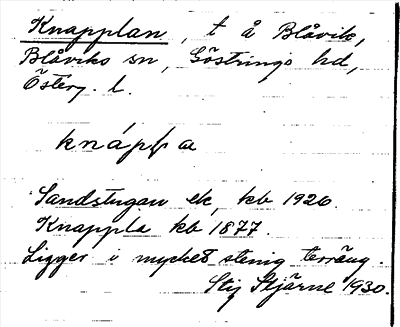 Knapplan, t å Blåvik,
Blåviks sn, Göstrings hd,
Österg. l.
knáppa
Sandstugan ek, kb 1920.
Knappla kb 1877.
Ligger i mycket stenig terräng.
Stig Stjärne 1930.